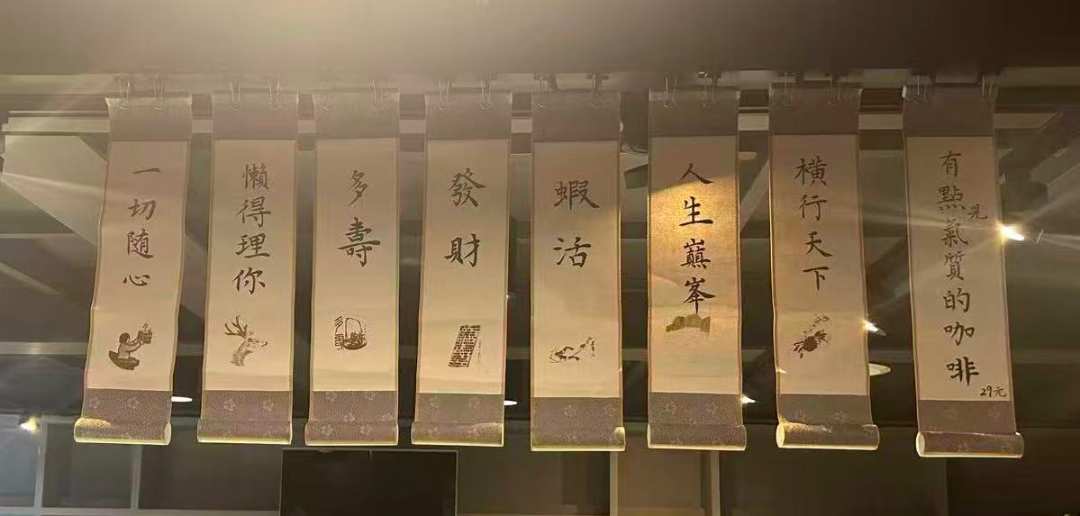 有點兒氣質的咖啡
29元
橫行天下
人生巔峯
蝦活
發財
多壽
懶得理你
一切随心